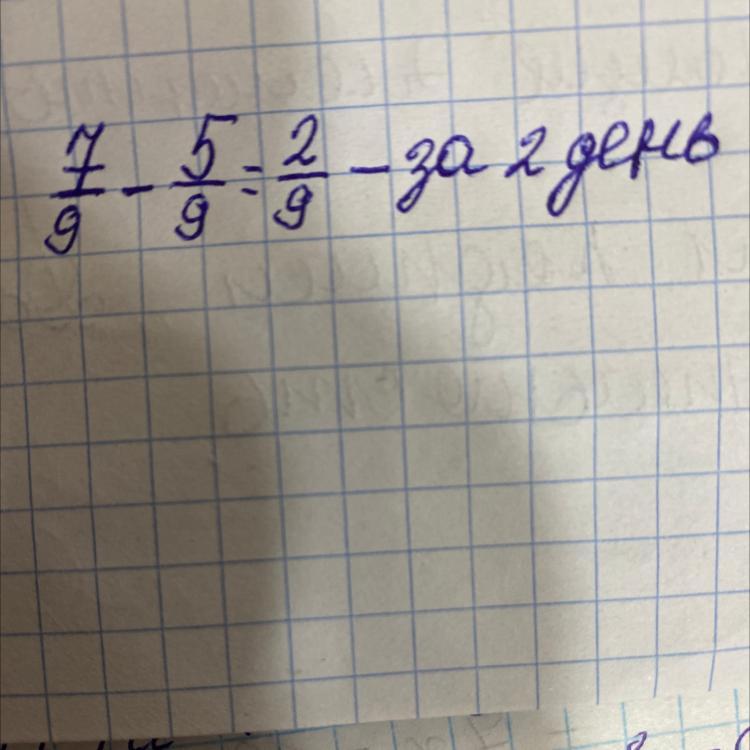 7/9 - 5/9 = 2/9 - за 2 день